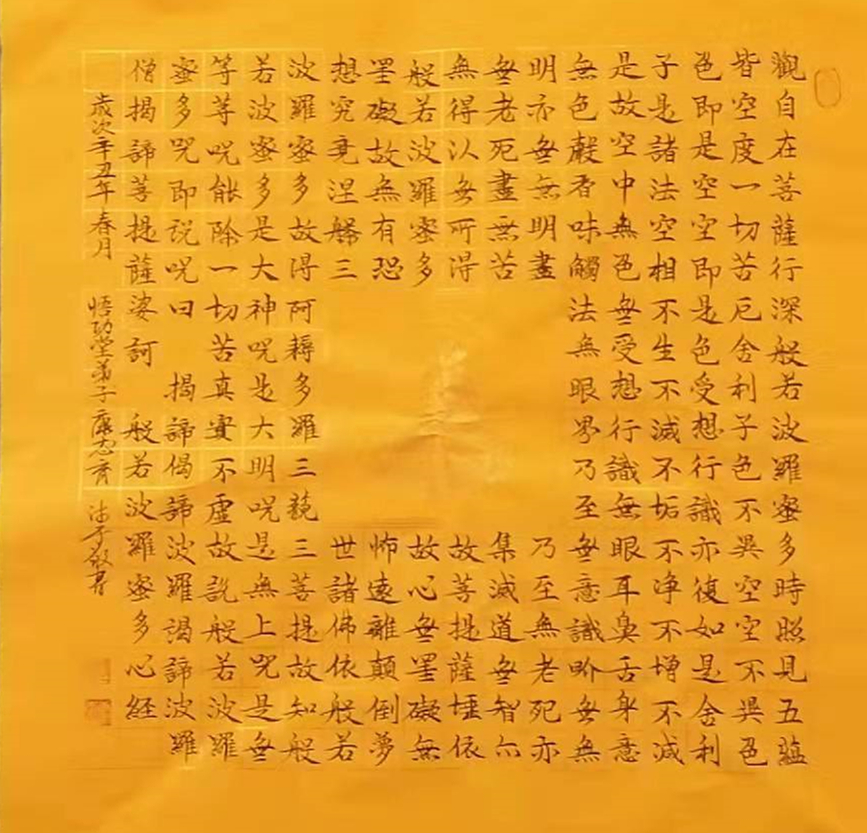 觀自在菩薩行深般若波羅蜜多時照見五蘊
皆空度一切苦厄舍利子色不異空空不異色
色即是空空即是色受想行識亦復如是舍利
子是諸法空相不生不滅不垢不净不增不減
是故空中無色無受想行識無眼耳鼻舌身意
無色聲香味觸法無眼界乃至無意識界無無
明亦無無明盡 乃至無老死亦
無老死盡無苦 集滅道無智亦
無得以無所得 故菩提薩埵依
般若波羅蜜多 故心無罣礙無
罣礙故無有恐 怖遠離顛倒夢
想究竟涅槃三 世諸佛依般若
波羅蜜多故得阿耨多羅三藐三菩提故知般
若波蜜多是大神呪是大明呪是無上呪是無
等等呪能除一切苦真實不虛故説般若波羅
蜜多呪即説呪曰 揭諦偈諦波羅謁諦波羅
僧揭諦菩提薩婆訶 般若波羅蜜多心経
歲次辛丑年春月 悟功堂弟子 沐手敬書